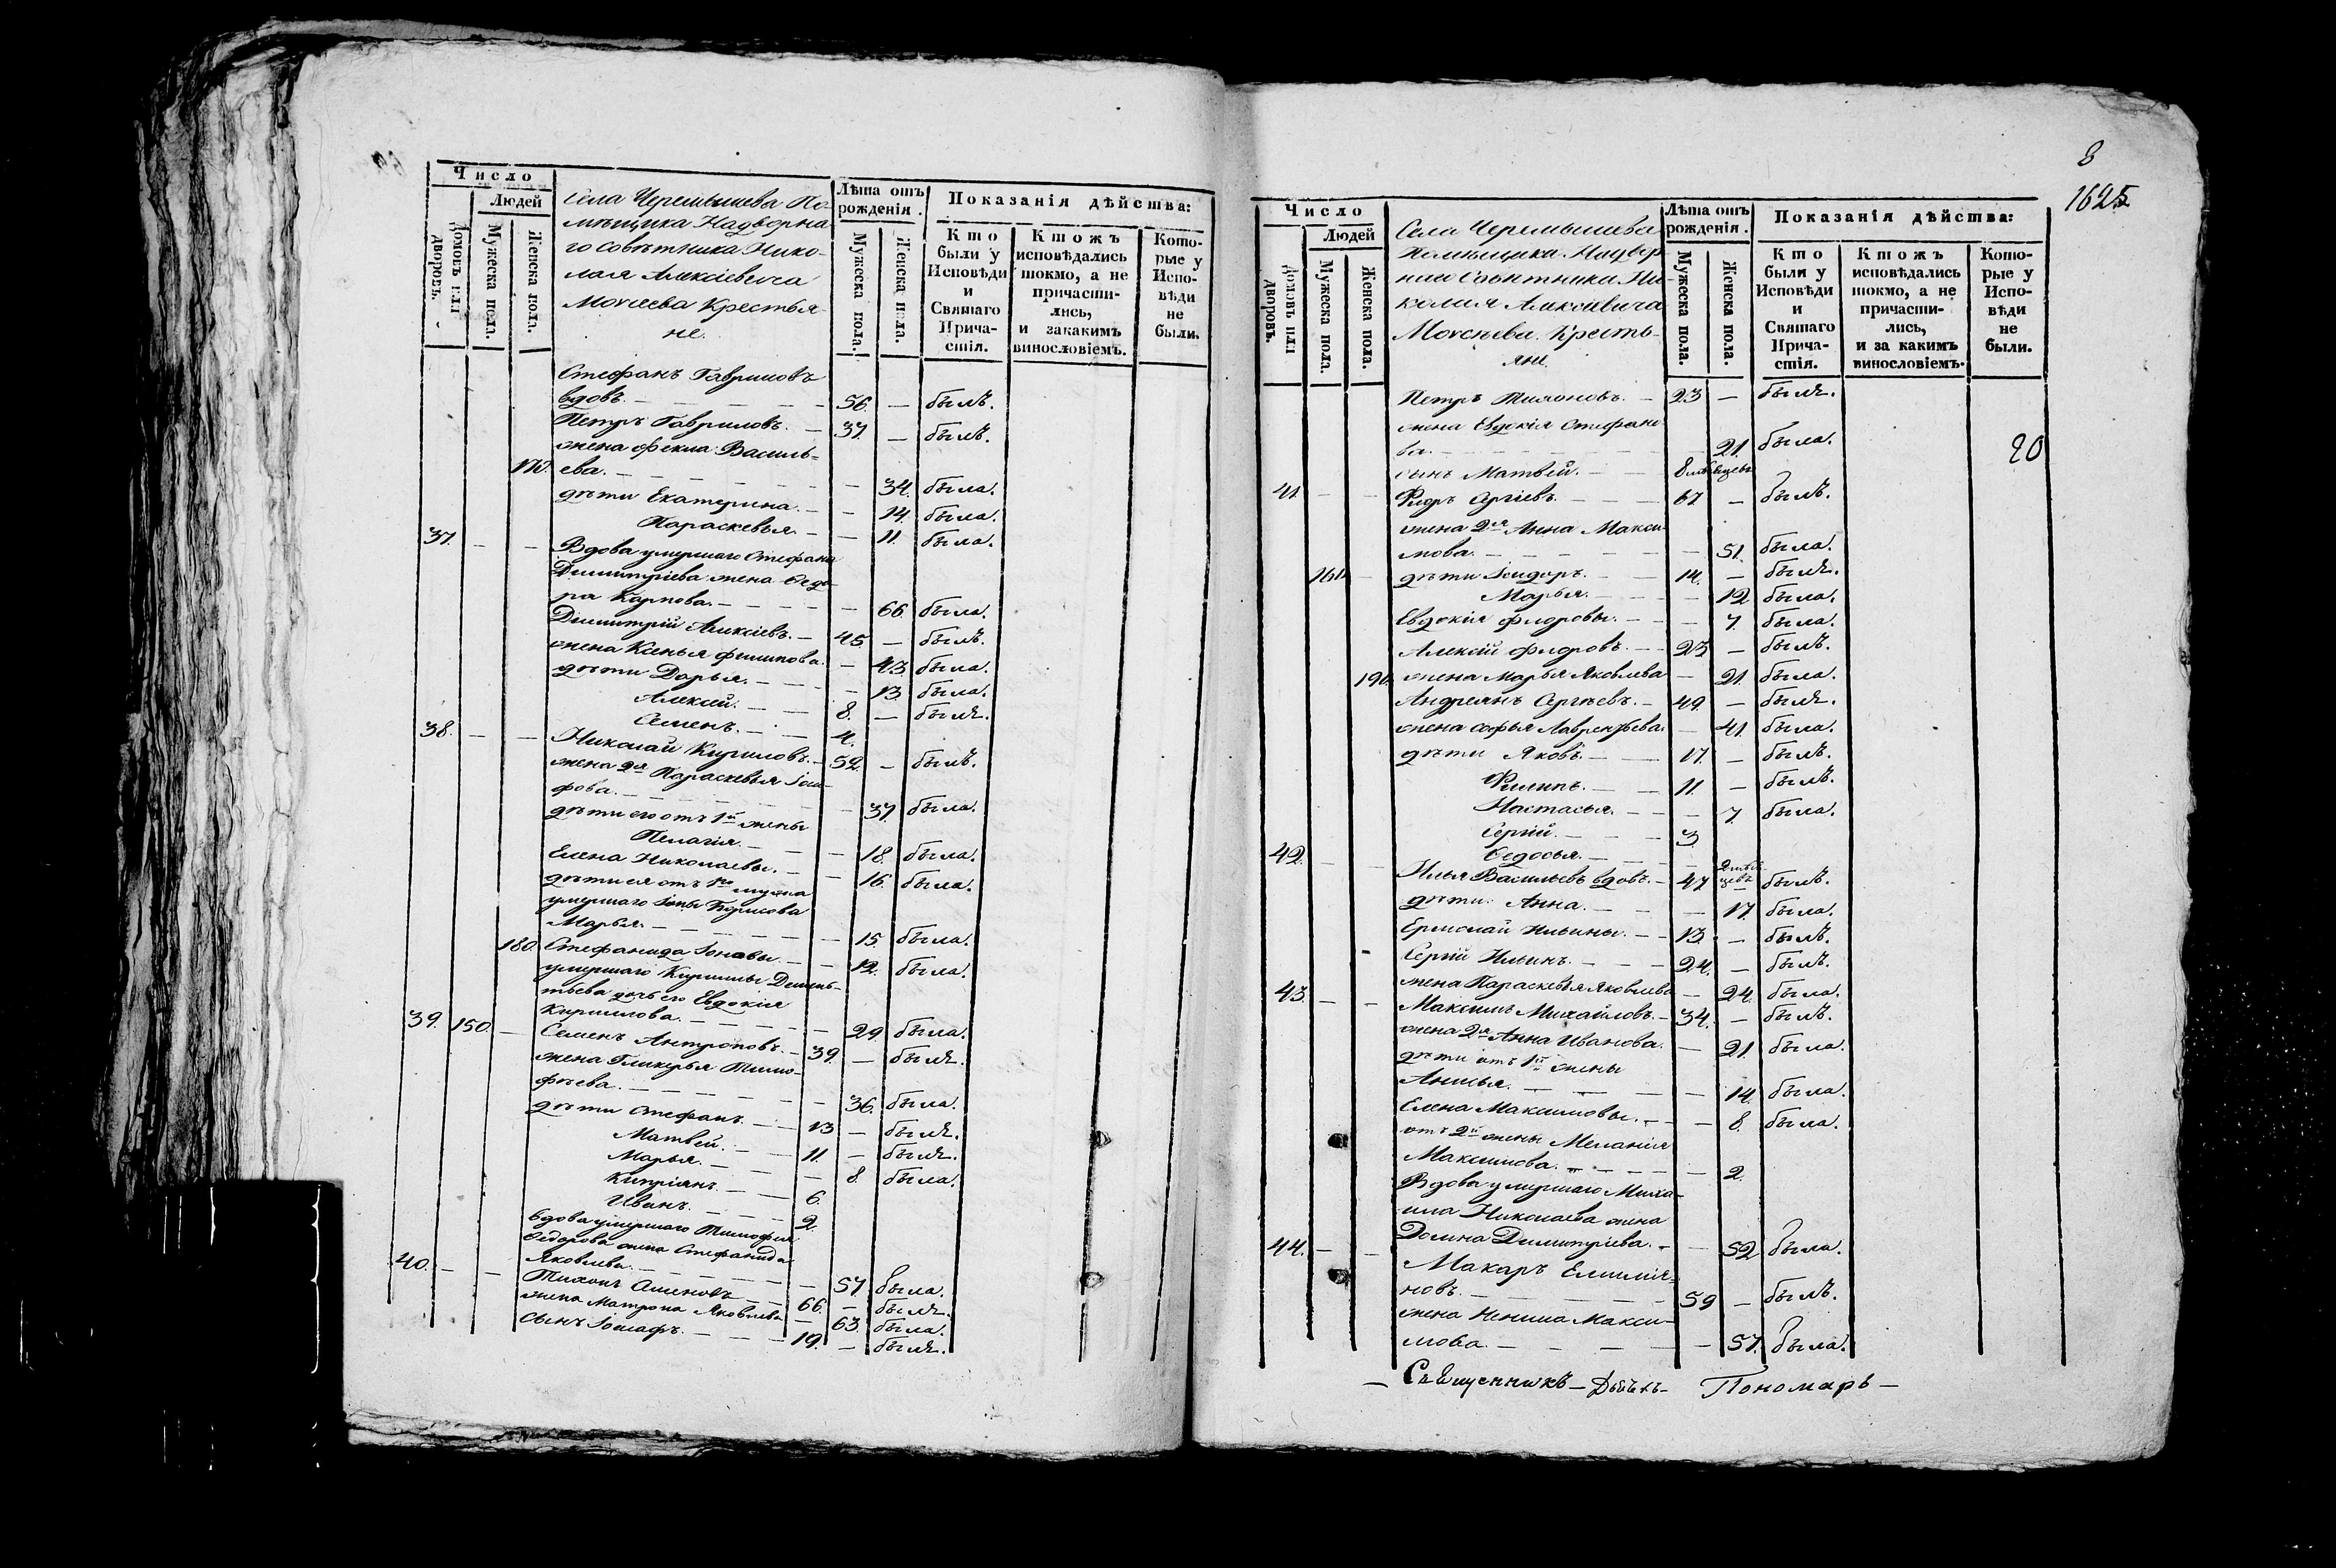 Число
Людей
домовъ или дворовъ.
Мужеска пола.
Женска пола.
Села Черемышева По-
мѣщика Надворна
го Совѣтника Нико-
лая Алексіевича
Моисеева Крестья
не.
Лѣта отъ рожденія.
Мужеска пола.
Женска пола.
Показанія дѣйства:
Кто были у Исповѣди и Святаго Прича- стія.
Ктожъ исповѣдались токмо, а не причасти- лись, и закакимъ винословіемъ.
Кото- рые у Испо- вѣди не были.
Стефанъ Гавриловъ
вдовъ. — 56. — былъ.
Петръ Гавриловъ. — 37. — былъ.
жена Фекла Василь=
170. ева. — — 34. была.
дѣти Екатерина. — — 14. была.
Параскевья. — — 11. была.
37. — — Вдова умершаго Стефана
Димитріева жена Ѳедо
ра Карпова. — — 66. была.
Димитрій Алексіевъ. — 45. — былъ.
жена Ксенья Филипова. — 43. была.
дѣти Дарья. — — 13. была.
Алексій. — 8. — былъ.
Семенъ. — 4.
38. — — Николай Кириловъ. — 52. — былъ.
жена 2я Параскевья Іоси-
фова. — — 37. была.
дѣти его отъ 1й жены
Пелагія. — — 18. была.
Елена Николаевы. — — 16. была.
дѣти ея отъ 1го мужа
умершаго Іоны Борисова
Марья. — — 15. была.
180. Стефанида Іонавы. — — 12. была.
умершаго Кирилы Демень-
тьева дочь его Евдокія
Кирилова. — — 29. была.
39. 150. — Семенъ Антроповъ. — 39. — былъ.
жена Гликерья Тимо-
фѣева. — — 36. была.
дѣти Стефанъ. — 13 — былъ.
Матвей. — 11. — былъ.
Марья. — — 8. была.
Кипріянъ. — 6.
Иванъ. — 2.
Вдова умершаго Тимофея
Ѳедорова жена Стефанида
Яковлева. — — 57. была.
40. — — Тихонъ Семеновъ — 66. — былъ.
жена Матрона Яковлева — 63. была.
Сынъ Іосафъ. — 19. — былъ.
8
1625
Число
Людей
домовъ или дворовъ.
Мужеска пола.
Женска пола.
Села Черемышева
Помѣщика Надвор
наго Совѣтника Ни-
колая Алексіевича
Моисѣева Кресть-
яне.
Лѣта отъ рожденія.
Мужеска пола.
Женска пола.
Показанія дѣйства:
Кто были у Исповѣди и Святаго Прича- стія.
Ктожъ исповѣдались токмо, а не причасти- лись, и за какимъ винословіемъ.
Кото- рые у Испо- вѣди не были.
Петръ Тихоновъ. — 23 — былъ.
жена Евдокія Стефано
ва. — 21. была.
20
сынъ Матвей. — 8 мѣсяцевъ
41 — — Ѳедоръ Сергіевъ. — 67. — былъ.
жена 2я Анна Макси
мова. — — 51. была.
160. — дѣти Ісидоръ. — 14. — былъ.
Марья. — — 12 была.
Евдокія Федровы. — — 7. была.
Алексій Федровъ. — 23 — былъ.
190. жена Марья Яковлева — 21. была.
Андреянъ Сергѣевъ. — 49. — былъ.
жена Софья Лаврентьева. — 41. была.
дѣти Яковъ. — 17. — былъ.
Филипъ. — 11. — былъ.
Настасья. — — 7. была.
Сергій. — 3
Ѳедосья. — — 2 мѣсяцевъ
42. — — Илья Васильевъ вдовъ. — 47 былъ.
дѣти Анна. — — 17. была.
Ермолай Ильины. — 13. — былъ.
Сергій Ильинъ. — 24. — былъ.
жена Параскевья Яковлева — 24. была.
43. — — Максимъ Михайловъ. — 34. — былъ.
жена 2я Анна Иванова. — 21. была.
дѣти отъ 1й жены
Анисья. — — 14. была.
Елена Максимовы. — — 8. была.
отъ 2й жены Меланія
Максимова. — — 2.
Вдова умершаго Миха-
ила Николаева жена
Домна Димитріева. — — 52 была.
44. — — Макаръ Емилія-
новъ. — 59 — былъ.
жена Ненила Макси-
мова. — — 57. была.
— Священникъ — Дьячекъ — Пономарь —